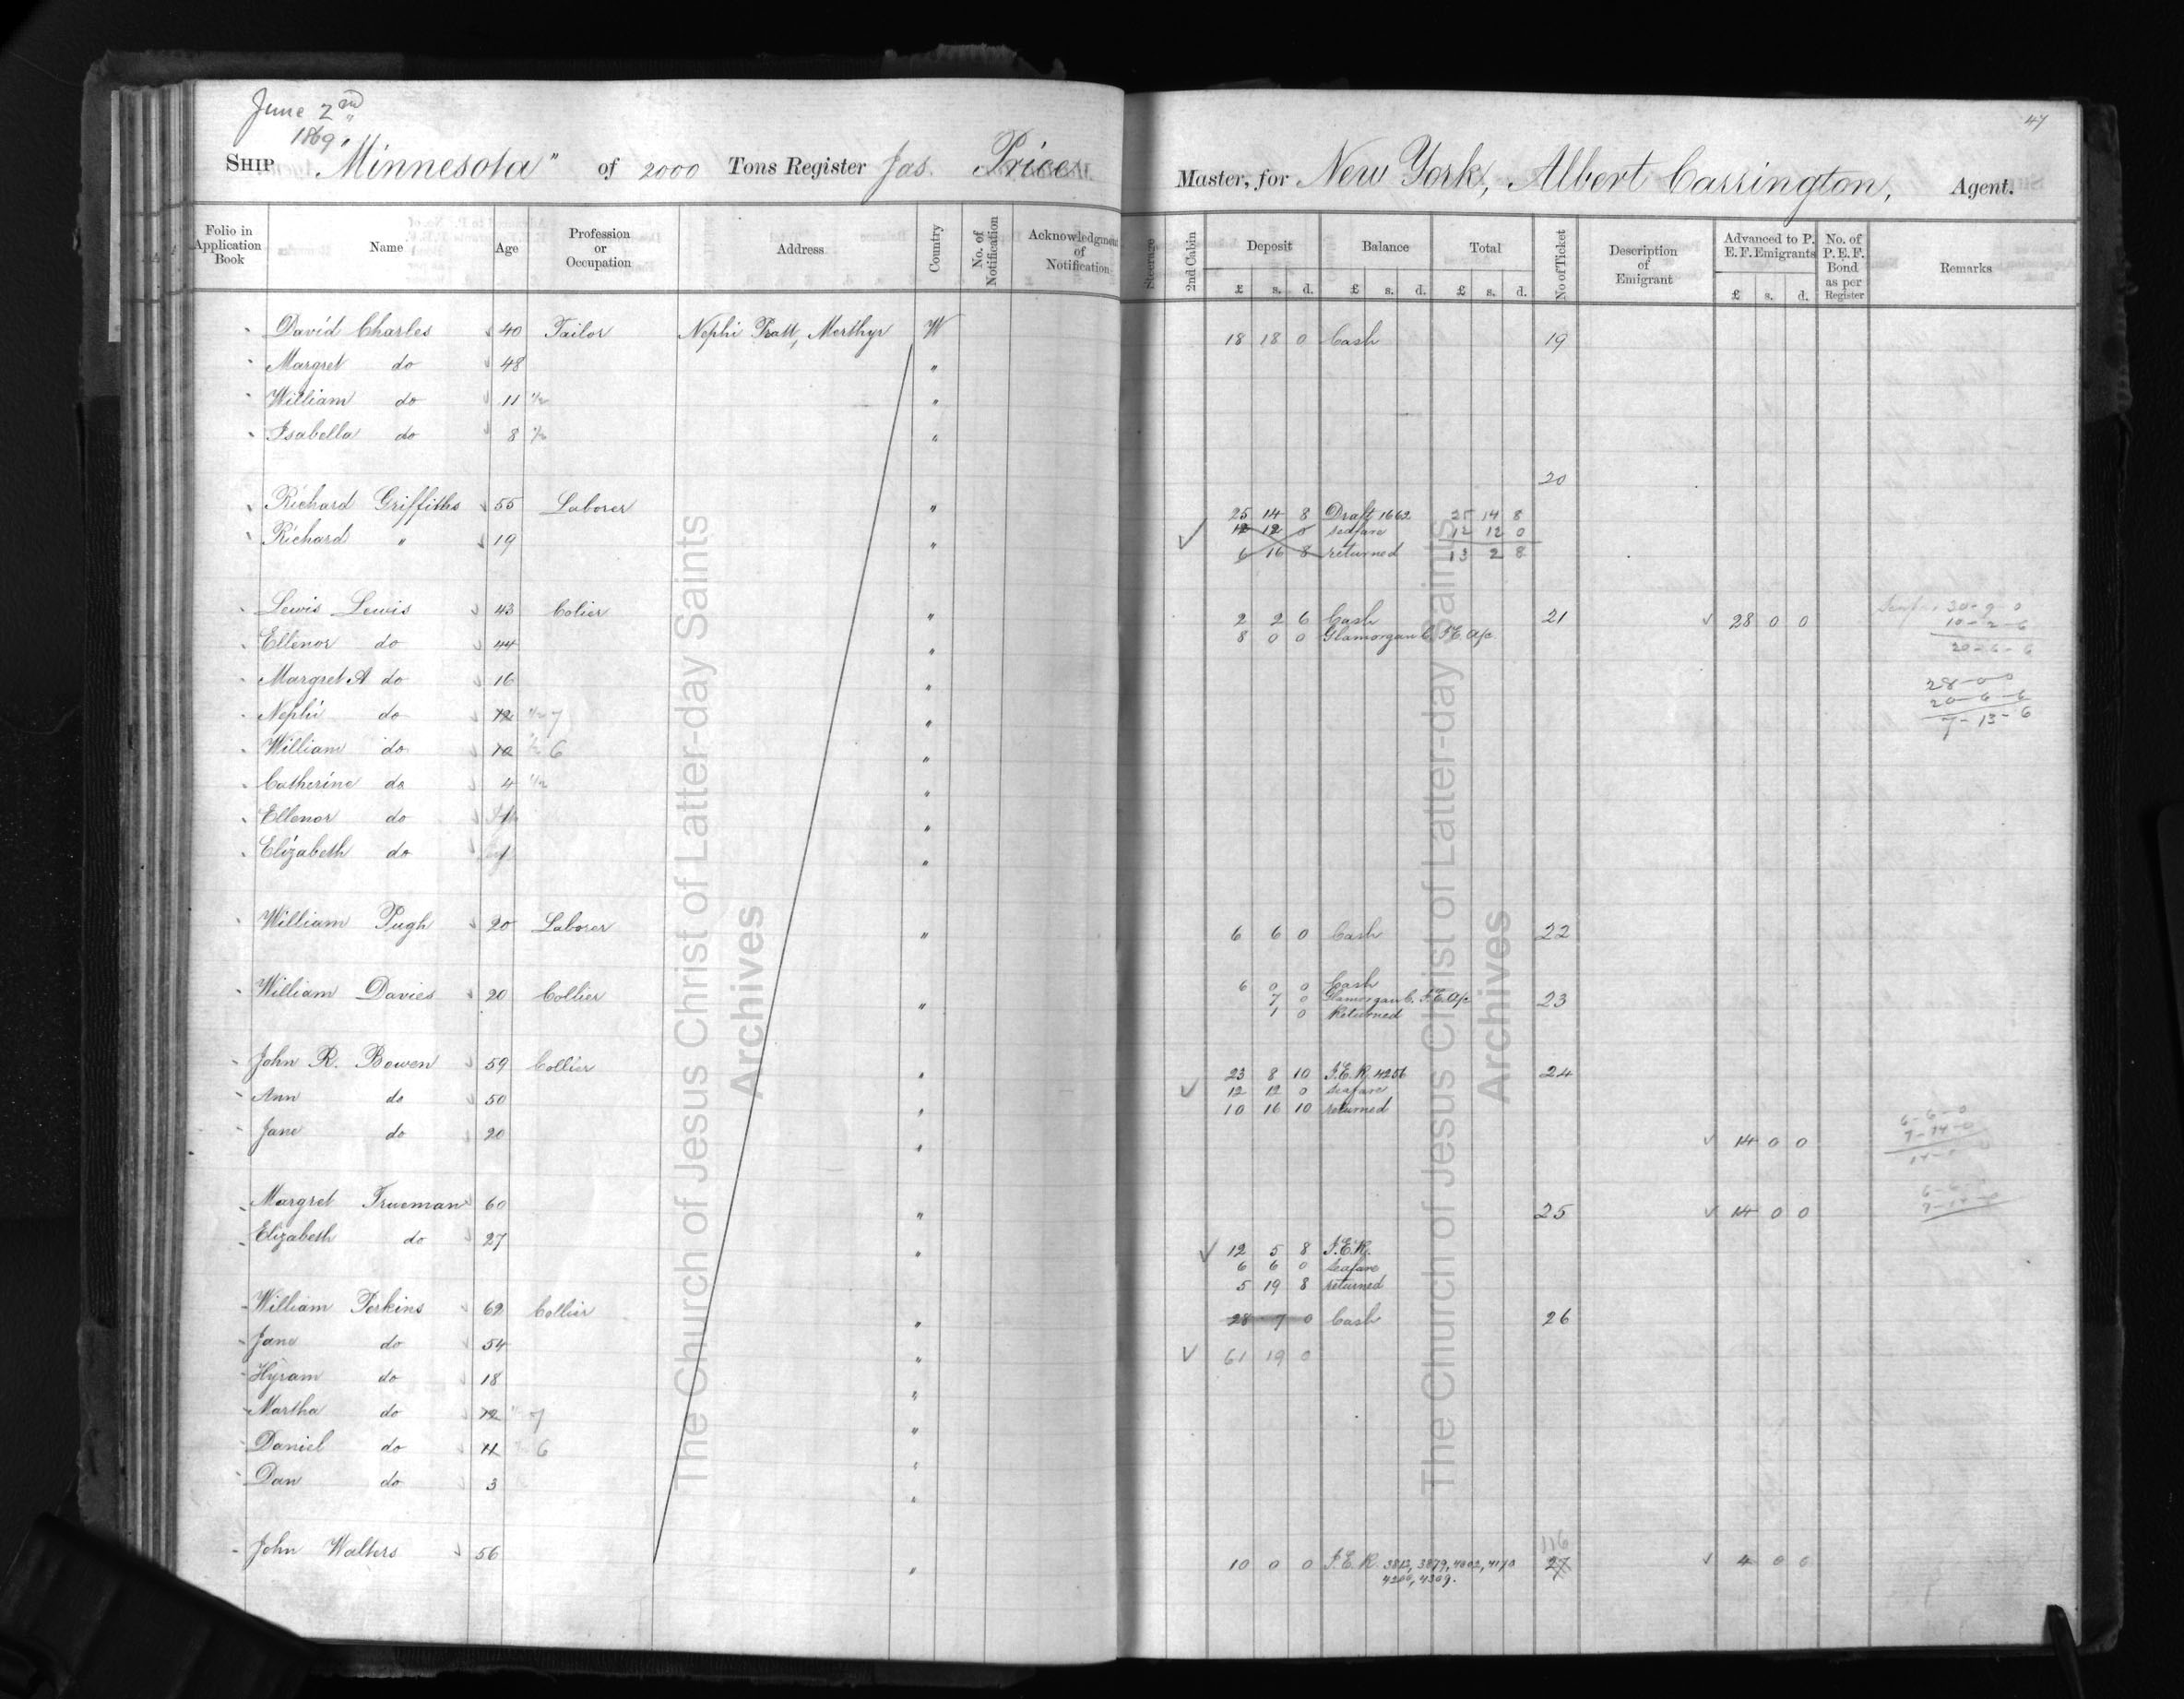 June 2nd
1869
SHIP "Minnesota" of 2000 Tons Register Jas. Price
Folio in Application Book | Name | Age | Profession or Occupation | Address | Country | No. of Notification | Acknowledgment of Notification
David Charles 40 Tailor Nephi Pratt, Merthyr W
Margret do 48 "
William do 11 "
Isabella do 8 "
Richard Griffiths 55 Laborer "
Richard " 19 "
Lewis Lewis 43 Colier "
Ellenor do 44 "
Margret A do 16 "
Nephi do 12 7 "
William do 10 6 "
Catherine do 4 "
Ellenor do 1 "
Elizabeth do 1 "
William Pugh 20 Laborer "
William Davies 20 Collier "
John R. Bowen 59 Collier "
Ann do 50 "
Jane do 20 "
Margret Trueman 60 "
Elizabeth do 27 "
William Perkins 62 Collier "
Jane do 54 "
Hyram do 18 "
Martha do 12 7 "
Daniel do 11 6 "
Dan do 3 "
John Walters 56 "
The Church of Jesus Christ of Latter-day Saints
Archives
47
Master, for New York, Albert Carrington, Agent.
Steerage | 2nd Cabin | Deposit £ s. d. | Balance £ s. d. | Total £ s. d. | No of Ticket | Description of Emigrant | Advanced to P. E. F. Emigrants £ s. d. | No. of P. E. F. Bond as per Register | Remarks
18 18 0 Cash 19
20
25 14 8 Draft 1662 25 14 8
12 12 0 seafare 12 12 0
6 16 8 returned 13 2 8
2 2 6 Cash 21 28 0 0 30-9-0
8 0 0 Glamorgan C. I. E. a/c 10-2-6
20-6-6
28-0-0
20-6-6
7-13-6
6 6 0 Cash 22
6 0 0 Cash
7 0 Glamorgan C. I. E. a/c 23
1 0 Returned
23 8 10 I. E. R. 4256 24
12 12 0 seafare
10 16 10 returned
14 0 0 6-6-0
7-14-0
25 14 0 0
12 5 8 I. E. R.
6 6 0 seafare
5 19 8 returned
28 7 0 Cash 26
61 19 0
116
10 0 0 I. E. R. 3812, 3879, 4002, 4170 27 4 0 0
4206, 4309.
The Church of Jesus Christ of Latter-day Saints
Archives